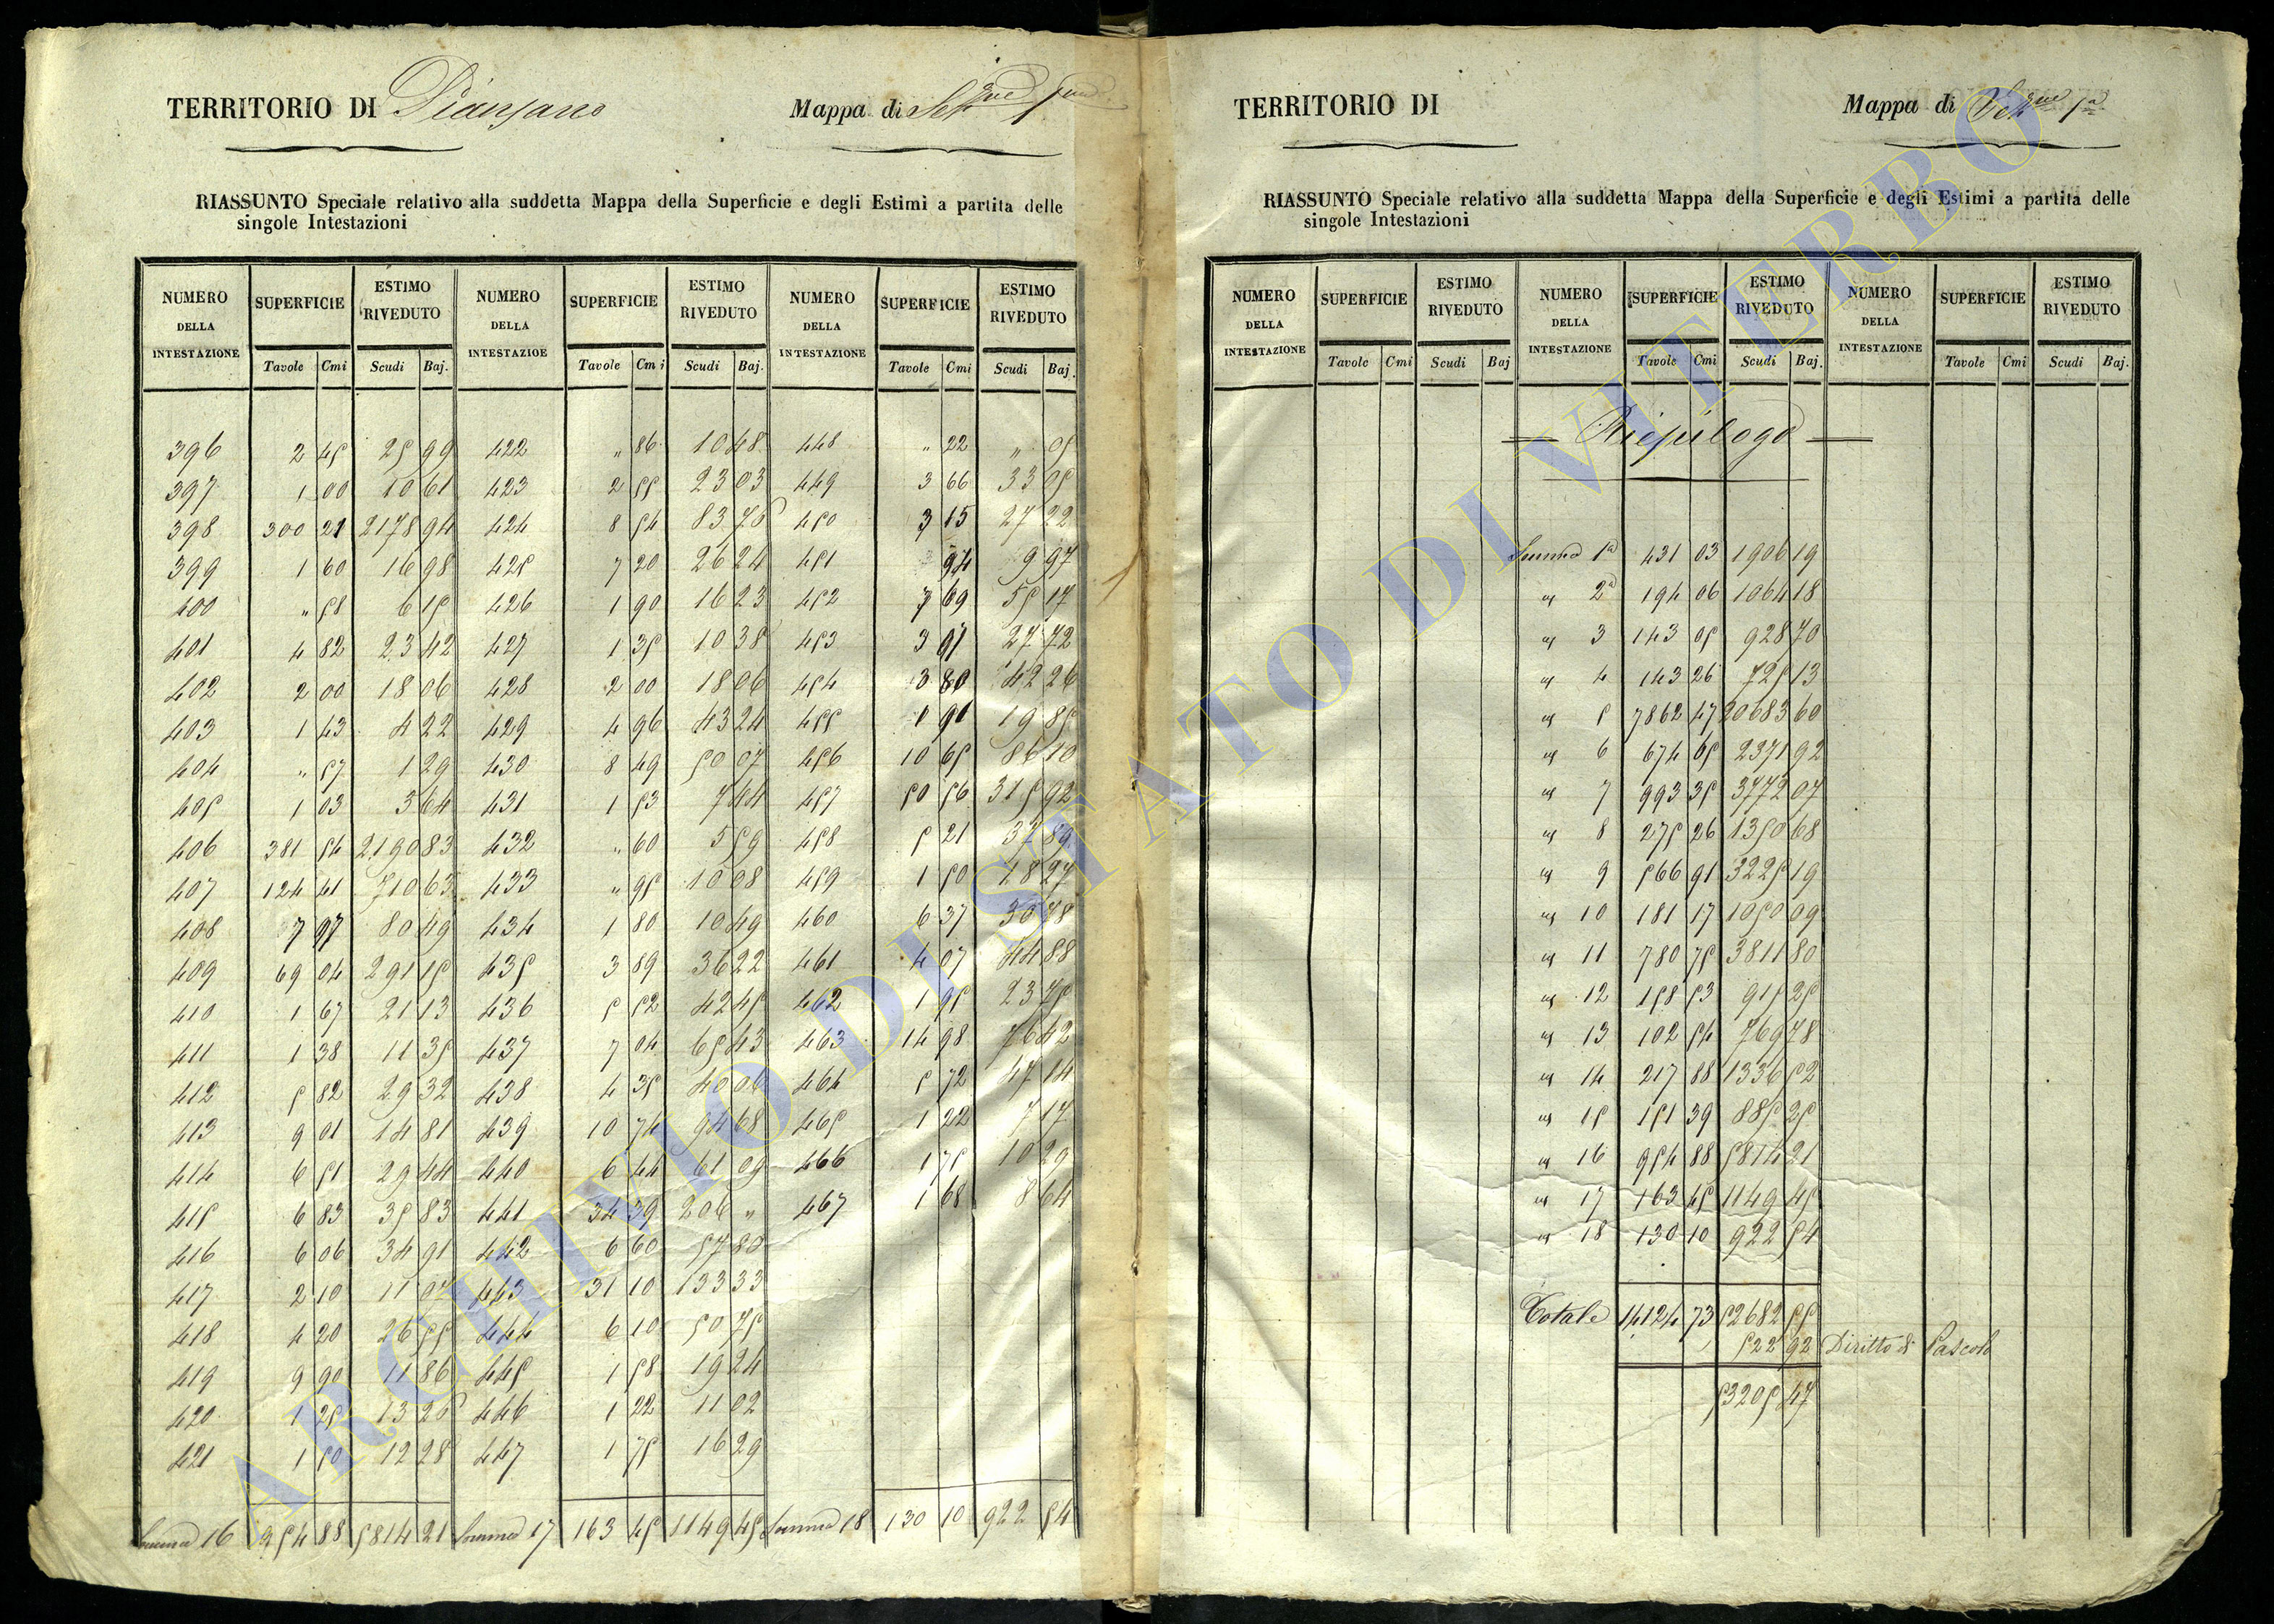 TERRITORIO DI Piansano Mappa di Sez.ne
RIASSUNTO Speciale relativo alla suddetta Mappa della Superficie e degli Estimi a partita delle
singole Intestazioni
NUMERO DELLA INTESTAZIONE SUPERFICIE ESTIMO RIVEDUTO NUMERO DELLA INTESTAZIOE SUPERFICIE ESTIMO RIVEDUTO NUMERO DELLA INTESTAZIONE SUPERFICIE ESTIMO RIVEDUTO
Tavole Cmi Scudi Baj. Tavole Cmi Scudi Baj. Tavole Cmi Scudi Baj.
396 2 45 25 99 422 " 86 10 48 448 " 22 " 05
397 1 00 10 61 423 2 55 23 03 449 3 66 33 05
398 300 21 2178 94 424 8 54 83 76 450 3 15 27 22
399 1 60 16 98 425 7 20 26 24 451 94 9 97
400 " 58 6 15 426 1 90 16 23 452 7 69 55 17
401 4 82 23 42 427 1 35 10 38 453 3 07 27 72
402 2 00 18 06 428 2 00 18 06 454 3 80 42 26
403 1 43 4 22 429 4 96 43 24 455 1 91 19 85
404 " 57 1 29 430 8 49 50 07 456 10 65 86 10
405 1 03 3 64 431 1 53 7 44 457 50 56 315 92
406 381 54 2190 83 432 " 60 5 59 458 5 21 37 89
407 124 41 710 63 433 " 95 10 08 459 1 50 18 27
408 7 97 80 49 434 1 80 10 49 460 6 37 30 78
409 69 04 291 15 435 3 89 36 22 461 4 07 44 88
410 1 67 21 13 436 5 52 42 45 462 1 95 23 75
411 1 38 11 35 437 7 04 65 43 463 14 98 76 42
412 5 82 29 32 438 4 35 40 06 464 5 72 47 14
413 9 01 14 81 439 10 74 94 68 465 1 22 7 17
414 6 51 29 44 440 6 44 61 09 466 1 75 10 29
415 6 83 35 83 441 34 39 206 " 467 1 68 8 64
416 6 06 34 91 442 6 60 57 80
417 2 10 11 07 443 31 10 133 33
418 4 20 26 55 444 6 10 50 75
419 9 90 11 86 445 1 58 19 24
420 1 25 13 26 446 1 22 11 02
421 1 50 12 28 447 1 75 16 29
Somma 16 954 88 5814 21 Somma 17 163 45 1149 45 Somma 18 130 10 922 54
TERRITORIO DI Mappa di Sez.ne
RIASSUNTO Speciale relativo alla suddetta Mappa della Superficie e degli Estimi a partita delle
singole Intestazioni
NUMERO DELLA INTESTAZIONE SUPERFICIE ESTIMO RIVEDUTO NUMERO DELLA INTESTAZIONE SUPERFICIE ESTIMO RIVEDUTO NUMERO DELLA INTESTAZIONE SUPERFICIE ESTIMO RIVEDUTO
Tavole Cmi Scudi Baj Tavole Cmi Scudi Baj. Tavole Cmi Scudi Baj.
Riepilogo
Somma 1a 431 03 1906 19
2a 194 06 1064 18
3 143 05 928 70
4 143 26 725 13
5 7862 47 20683 60
6 674 65 2371 92
7 993 35 3772 07
8 275 26 1350 68
9 566 91 3225 19
10 181 17 1050 09
11 780 75 3811 80
12 158 53 915 25
13 102 54 769 78
14 217 88 1336 52
15 151 39 885 25
16 954 88 5814 21
17 163 45 1149 45
18 130 10 922 54
Totale 14124 73 52682 55
522 92 Diritto di Pascolo
53205 47
ARCHIVIO DI STATO DI VITERBO